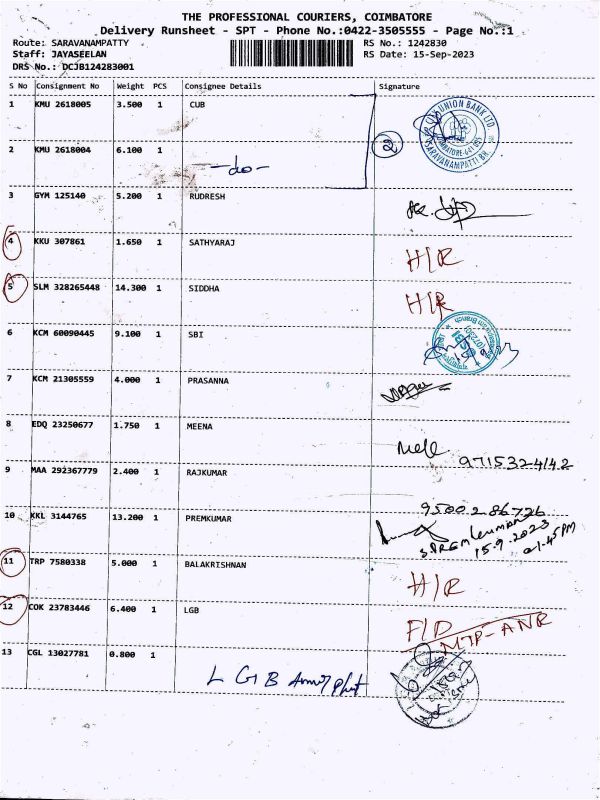 THE PROFESSIONAL COURIERS, COIMBATORE
Delivery Runsheet - SPT - Phone No.:0422-3505555 - Page No.:1
Route: SARAVANAMPATTY RS No.: 1242830
Staff: JAYASEELAN RS Date: 15-Sep-2023
DRS No.: DCJB124283001
S No Consignment No Weight PCS Consignee Details Signature
1 KMU 2618005 3.500 1 CUB
2 KMU 2618004 6.100 1 -do- 2
3 GYM 125140 5.200 1 RUDRESH
4 KKU 307861 1.650 1 SATHYARAJ H/R
5 SLM 328265448 14.300 1 SIDDHA H/R
6 KCM 60090445 9.100 1 SBI
7 KCM 21305559 4.000 1 PRASANNA
8 EDQ 23250677 1.750 1 MEENA
9715324142
9 MAA 292367779 2.400 1 RAJKUMAR
9500286726
10 KKL 3144765 13.200 1 PREMKUMAR
15.9.2023
01.45PM
11 TRP 7580338 5.000 1 BALAKRISHNAN H/R
12 COK 23783446 6.400 1 LGB F/D
MTP-ANR
13 CGL 13027781 0.800 1
L G B